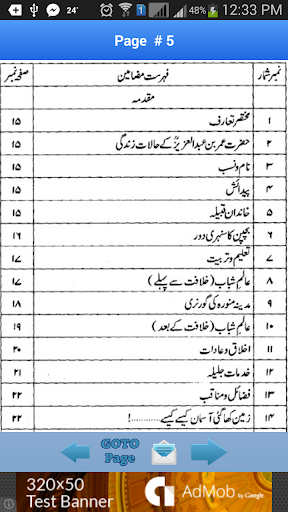 24° 48% 12:33 PM
Page # 5
نمبر شمار فہرست مضامین صفحہ نمبر
مقدمہ
۱ مختصر تعارف ۱۵
۲ حضرت عمر بن عبدالعزیزؒ کے حالات زندگی ۱۵
۳ نام و نسب ۱۵
۴ پیدائش ۱۵
۵ خاندان قبیلہ ۱۵
۶ بچپن کا سنہری دور ۱۶
۷ تعلیم و تربیت ۱۷
۸ عالم شباب (خلافت سے پہلے) ۱۷
۹ مدینہ منورہ کی گورنری ۱۸
۱۰ عالم شباب (خلافت کے بعد) ۱۹
۱۱ اخلاق و عادات ۲۰
۱۲ خدمات جلیلہ ۲۱
۱۳ فضائل و مناقب ۲۲
۱۴ زمین کھا گئی آسمان کیسے کیسے.....! ۲۲
GOTO
Page
320×50
Test Banner
AdMob by Google